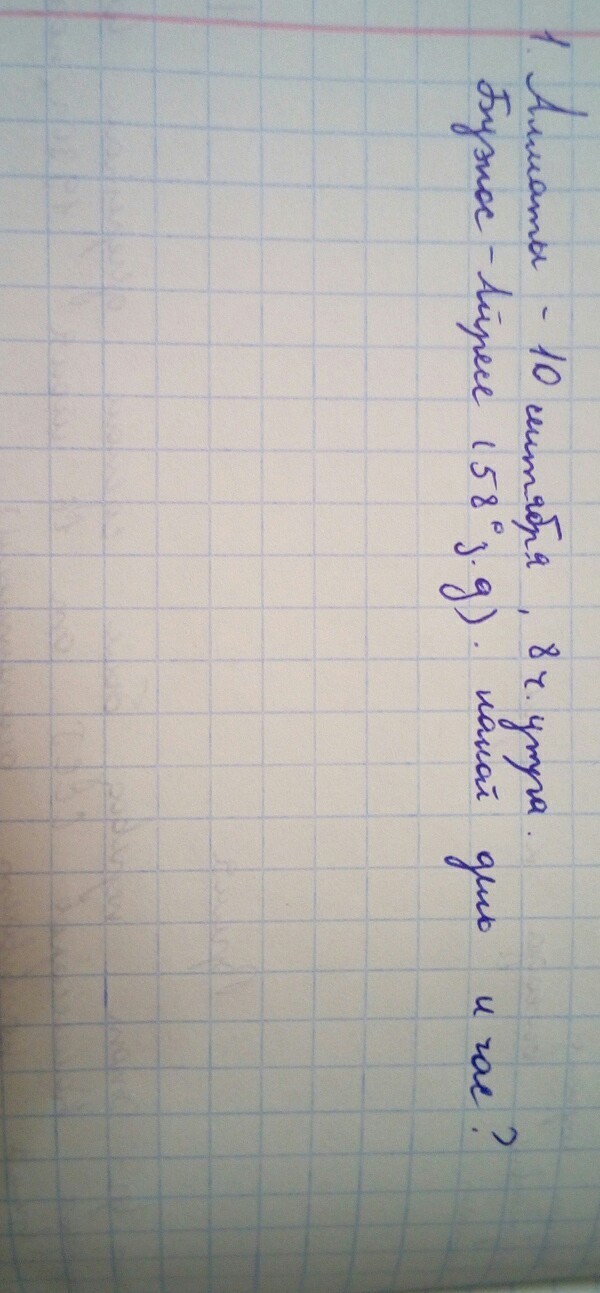 1. Алматы - 10 сентября, 8 ч. утра.
Буэнос - Айресе (58° з.д). какой день и час?